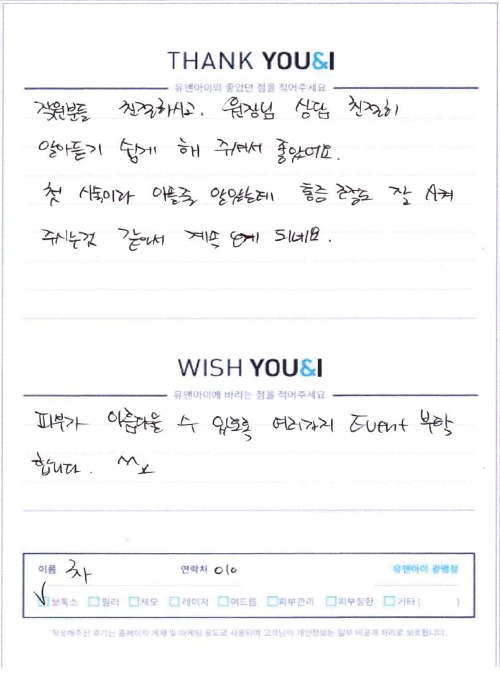 THANK YOU&I
유앤아이의 좋았던 점을 적어주세요
직원분들 친절하시고, 원장님 상담 친절히
알아듣기 쉽게 해 주셔서 좋았어요.
첫 시술이라 아플줄 알았는데 통증 조절도 잘 시켜
주시는것 같아서 계속 오게 되네요.
WISH YOU&I
유앤아이에 바라는 점을 적어주세요
피부가 아름다울 수 있도록 여러가지 Event 부탁
합니다.
이름 차 연락처 010 유앤아이 광명점
보톡스 필러 제모 레이저 여드름 피부관리 피부질환 기타 ( )
작성해주신 후기는 홈페이지 게재 및 마케팅 용도로 사용되며 고객님의 개인정보는 일부 비공개 처리로 보호됩니다.